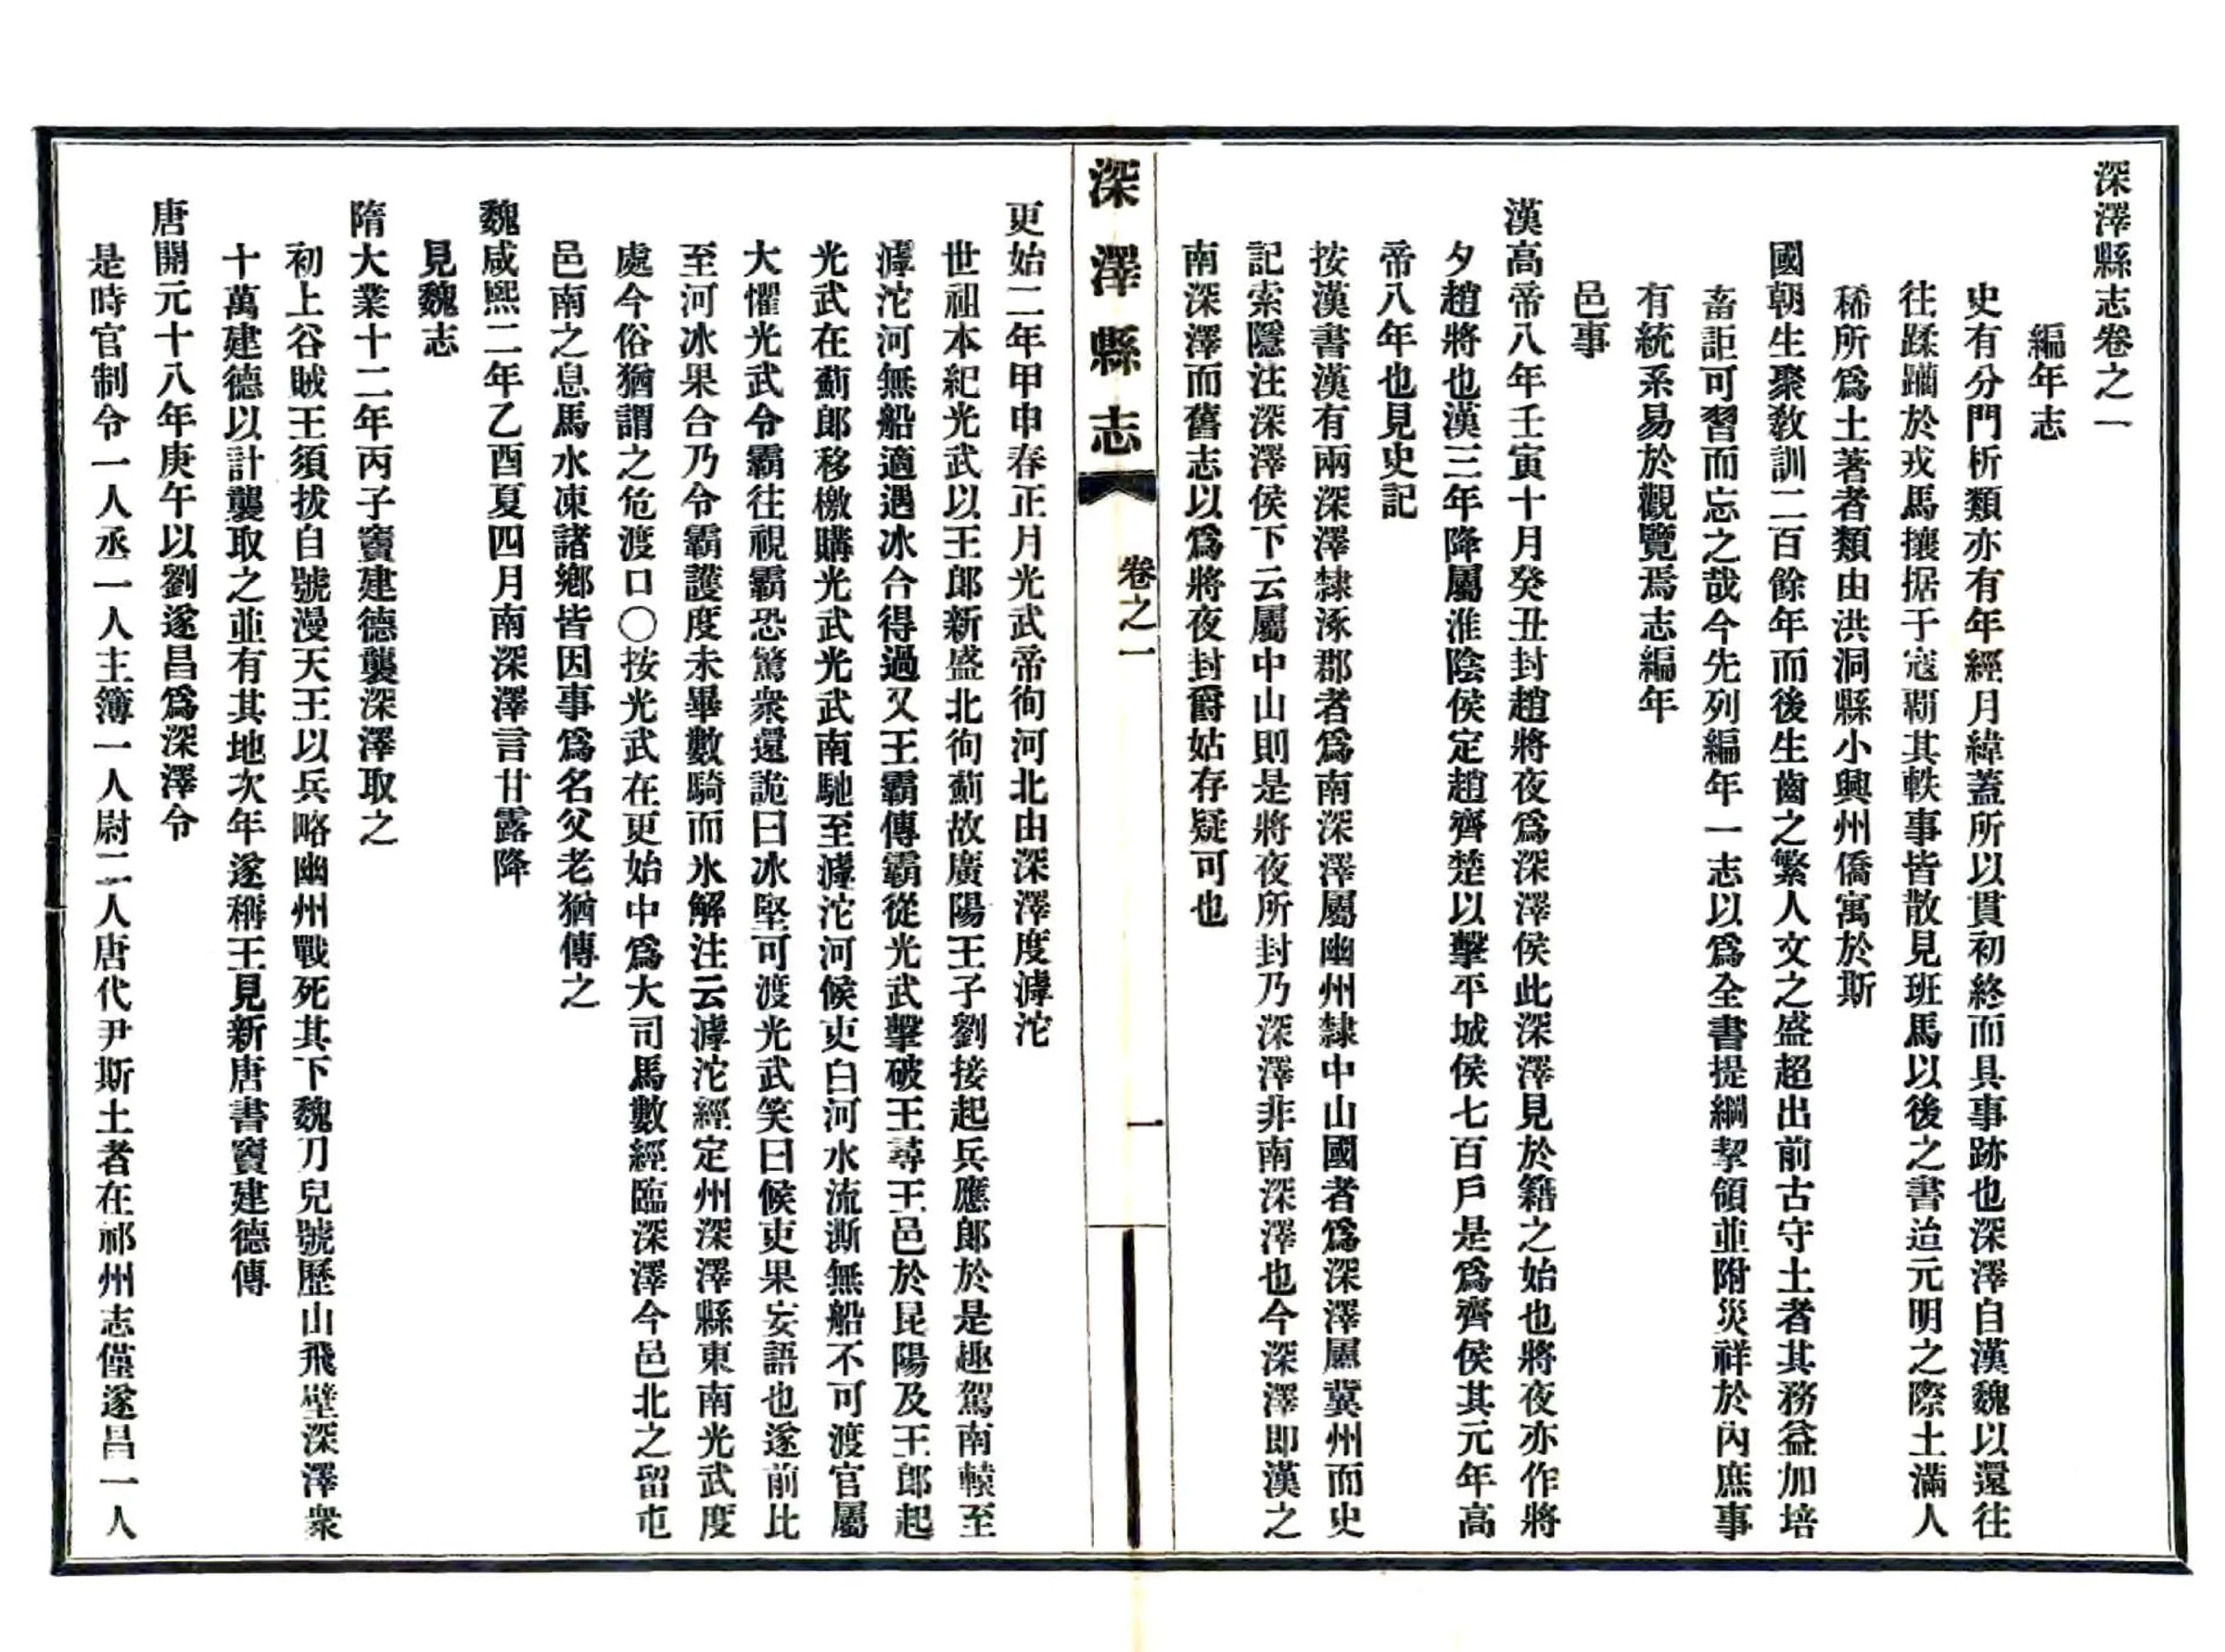 深澤縣志卷之一
編年志
史有分門析類亦有年經月緯蓋所以貫初終而具事跡也深澤自漢魏以還往
往蹂躪於戎馬攘据于寇覇其軼事皆散見班馬以後之書迨元明之際土滿人
稀所爲土著者類由洪洞縣小興州僑寓於斯
國朝生聚敎訓二百餘年而後生齒之繁人文之盛超出前古守土者其務益加培
畜詎可習而忘之哉今先列編年一志以爲全書提綱挈領並附災祥於內庶事
有統系易於觀覽焉志編年
邑事
漢高帝八年壬寅十月癸丑封趙將夜爲深澤侯此深澤見於籍之始也將夜亦作將
夕趙將也漢三年降屬淮陰侯定趙齊楚以擊平城侯七百戶是爲齊侯其元年高
帝八年也見史記
按漢書漢有兩深澤隸涿郡者爲南深澤屬幽州隸中山國者爲深澤屬冀州而史
記索隱注深澤侯下云屬中山則是將夜所封乃深澤非南深澤也今深澤即漢之
南深澤而舊志以爲將夜封爵姑存疑可也
深澤縣志
卷之一
一
更始二年甲申春正月光武帝徇河北由深澤度滹沱
世祖本紀光武以王郎新盛北徇薊故廣陽王子劉接起兵應郎於是趣駕南轅至
滹沱河無船適遇冰合得過又王霸傳霸從光武擊破王尋王邑於昆陽及王郎起
光武在薊郎移檄購光武光武南馳至滹沱河候吏白河水流澌無船不可渡官屬
大懼光武令霸往視霸恐驚衆還詭曰冰堅可渡光武笑曰候吏果妄語也遂前比
至河冰果合乃令霸護度未畢數騎而氷解注云滹沱經定州深澤縣東南光武度
處今俗猶謂之危渡口〇按光武在更始中爲大司馬數經臨深澤今邑北之留屯
邑南之息馬水凍諸鄉皆因事爲名父老猶傳之
魏咸熙二年乙酉夏四月南深澤言甘露降
見魏志
隋大業十二年丙子竇建德襲深澤取之
初上谷賊王須拔自號漫天王以兵略幽州戰死其下魏刀兒號歷山飛壁深澤衆
十萬建德以計襲取之並有其地次年遂稱王見新唐書竇建德傳
唐開元十八年庚午以劉遂昌爲深澤令
是時官制令一人丞一人主簿一人尉二人唐代尹斯土者在祁州志僅遂昌一人